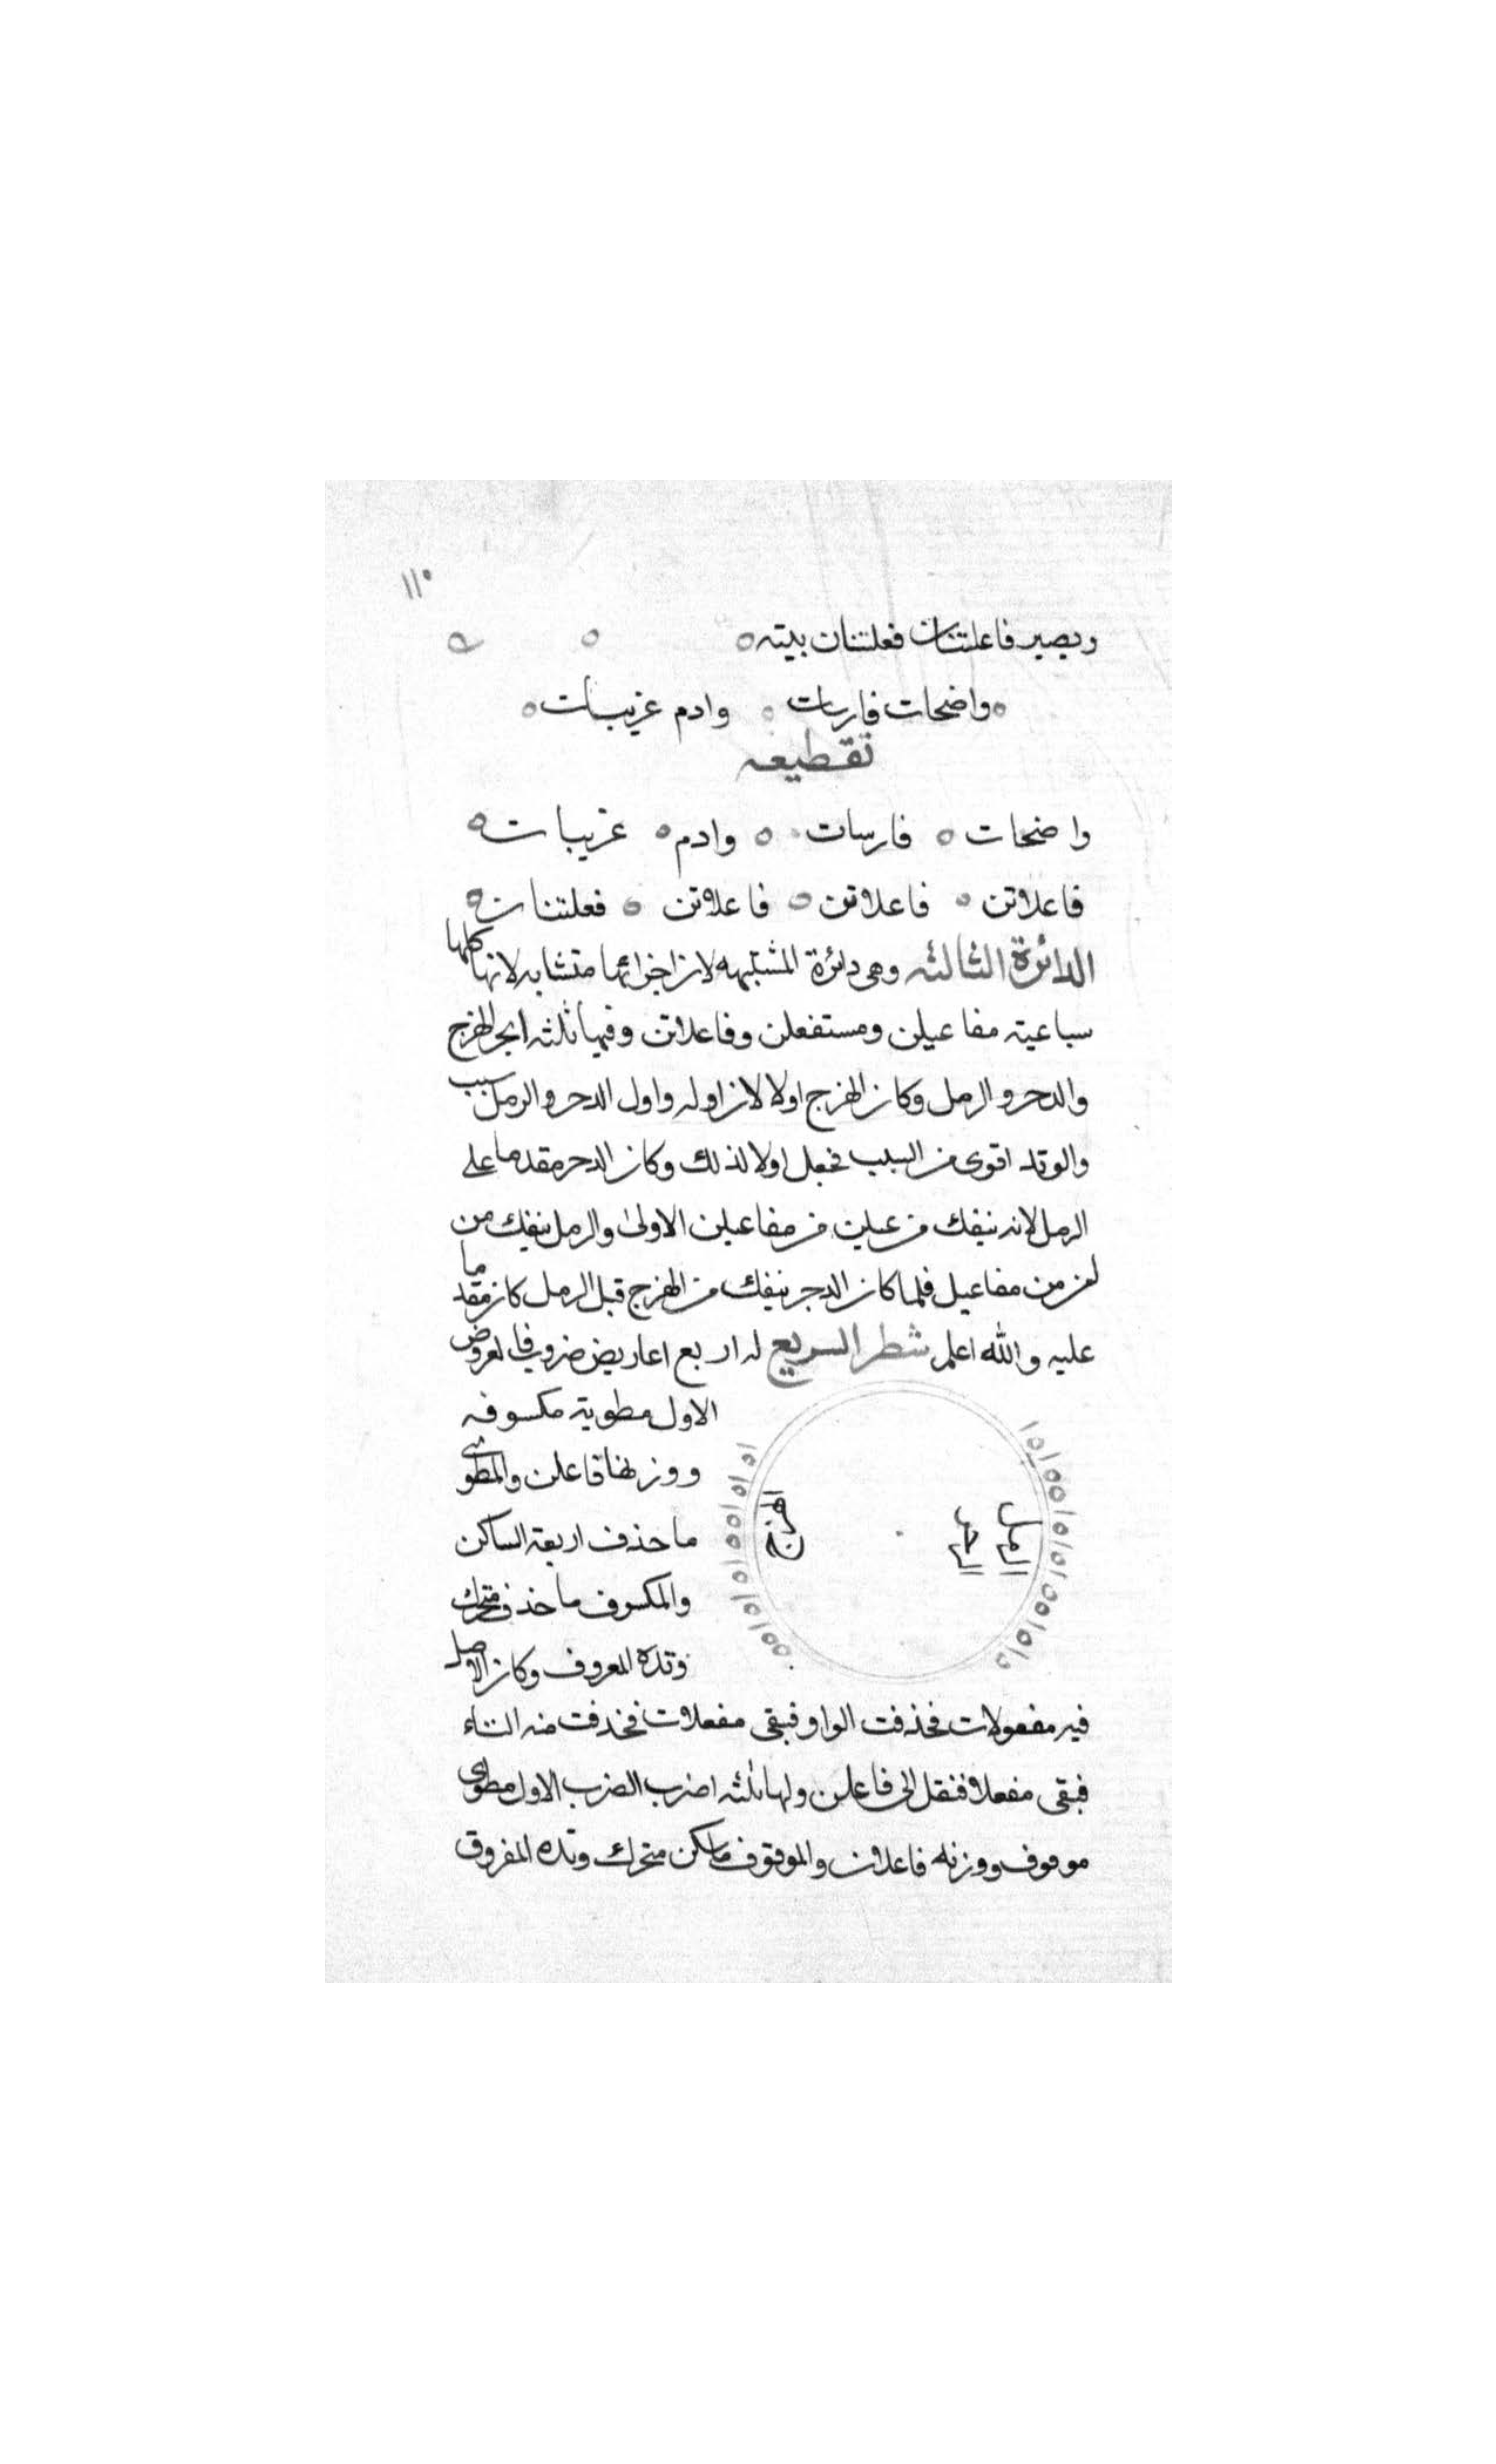 ١١٠
ويصير فاعلتنات فعلتنان بيته
واضحات فارسات وادم عربيات
تقطيعه
واضحات فارسات وادم عربيات
فاعلاتن فاعلاتن فاعلاتن فعلتنات
الدائرة الثالثه وهى دائرة المشتبهه لان اجزائها متشابه لانها كلها
سباعيته مفاعيلن ومستفعلن وفاعلاتن وفيها ثلثه ابحر الهزج
والدجر والرمل وكان الهزج اولا لان اوله واول الدجر والرمل سبب
والوتد اقوى من السبب فجعل اولا لذلك وكان الدجر مقدما على
الرمل لانه ينفك من عيلن من مفاعيلن الاولى والرمل ينفك من
لن من مفاعيل فلما كان الدجر ينفك من الهزج قبل الرمل كان مقدما
عليه والله اعلم شطر السريع له اربع اعاريض ضروب فالعروض
الاول مطوية مكسوفه
ووزنها فاعلن والمطوى
ماحذف اربعة الساكن
والمكسوف ماحذف متحرك
وتده المعروف وكان الاصل
فيه مفعولات فحذفت الواو فبقى مفعلات فحذفت منه التاء
فبقى مفعلا فنقل الى فاعلن ولها ثلثه اضرب الضرب الاول مطوى
موقوف ووزنه فاعلان والموقوف ماسكن متحرك وتده المفروق